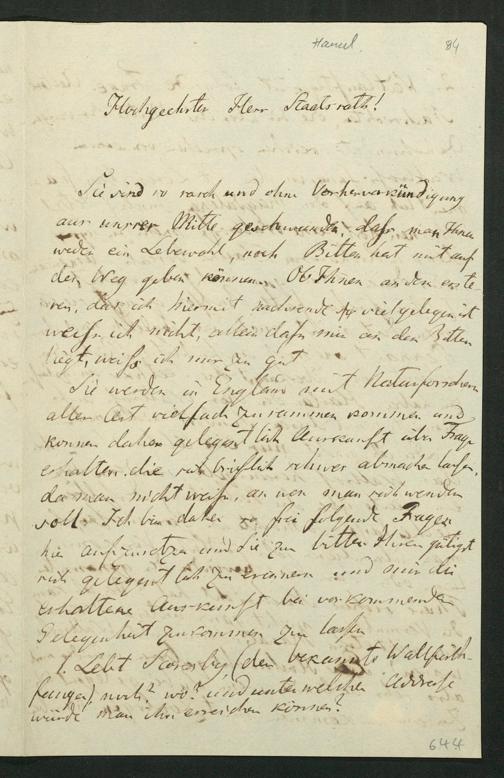 Hamel.
84
Hochgeehrter Herr Staatsrath!
Sie sind so rasch und ohne Vorherverkündigung
aus unsrer Mitte geschwunden, dass man Ihnen
weder ein Lebewohl, noch Bitten hat mit auf
den Weg geben können. Ob Ihnen an dem erste-
ren, das ich hiermit nachsende so viel gelegen ist
weiss ich nicht, allein dass mir an den Bitten
liegt, weiss ich nur zu gut
Sie werden in England mit Naturforschern
aller Art vielfach zusammen kommen und
können daher gelegentlich Auskunft über Frage
erhalten, die sich brieflich schwer abmachen lassen,
da man nicht weiss, an wen man sich wenden
soll. Ich bin daher so frei folgende Fragen
hie aufzusetzen und Sie zu bitten Ihrer gütigst
sich gelegentlich zu erinnern und mir die
erhaltene Auskunft bei vorkommender
Gelegenheit zukommen zu lassen
1. Lebt Scoresby (der bekannte Wallfisch-
fänger) noch? wo? und unter welcher Adresse
würde man ihn erreichen können?
644